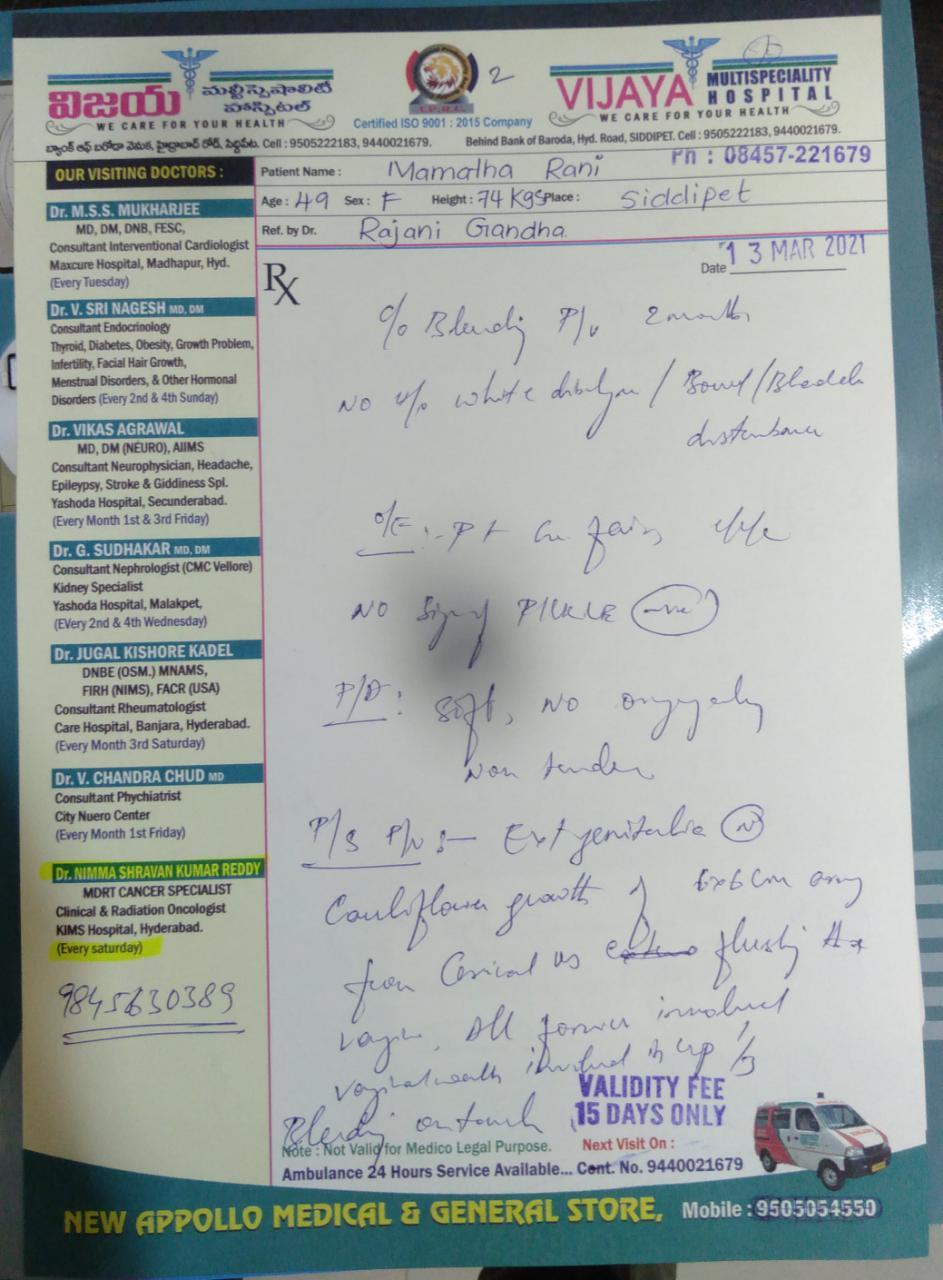 విజయ మల్టీస్పెషాలిటీ హాస్పిటల్
WE CARE FOR YOUR HEALTH
Certified ISO 9001 : 2015 Company
2
VIJAYA MULTISPECIALITY HOSPITAL
WE CARE FOR YOUR HEALTH
బ్యాంక్ ఆఫ్ బరోడా వెనుక, హైద్రాబాద్ రోడ్, సిద్దిపేట. Cell : 9505222183, 9440021679.
Behind Bank of Baroda, Hyd. Road, SIDDIPET. Cell : 9505222183, 9440021679.
Ph : 08457-221679
OUR VISITING DOCTORS :
Dr. M.S.S. MUKHARJEE
MD, DM, DNB, FESC,
Consultant Interventional Cardiologist
Maxcure Hospital, Madhapur, Hyd.
(Every Tuesday)
Dr. V. SRI NAGESH MD, DM
Consultant Endocrinology
Thyroid, Diabetes, Obesity, Growth Problem,
Infertility, Facial Hair Growth,
Menstrual Disorders, & Other Hormonal
Disorders (Every 2nd & 4th Sunday)
Dr. VIKAS AGRAWAL
MD, DM (NEURO), AIIMS
Consultant Neurophysician, Headache,
Epileypsy, Stroke & Giddiness Spl.
Yashoda Hospital, Secunderabad.
(Every Month 1st & 3rd Friday)
Dr. G. SUDHAKAR MD, DM
Consultant Nephrologist (CMC Vellore)
Kidney Specialist
Yashoda Hospital, Malakpet,
(EVery 2nd & 4th Wednesday)
Dr. JUGAL KISHORE KADEL
DNBE (OSM.) MNAMS,
FIRH (NIMS), FACR (USA)
Consultant Rheumatologist
Care Hospital, Banjara, Hyderabad.
(Every Month 3rd Saturday)
Dr. V. CHANDRA CHUD MD
Consultant Phychiatrist
City Nuero Center
(Every Month 1st Friday)
Dr. NIMMA SHRAVAN KUMAR REDDY
MDRT CANCER SPECIALIST
Clinical & Radiation Oncologist
KIMS Hospital, Hyderabad.
(Every saturday)
9845630389
Patient Name : Mamatha Rani
Age : 49 Sex : F Height : 74 Kgs Place : Siddipet
Ref. by Dr. Rajani Gandha.
Rx
Date 13 MAR 2021
c/o Bleeding P/v 2 months
NO h/o white discharge / Bowel / Bladder
disturbance
O/E :- Pt fair
NO sign of PICKLE -ve
P/A : soft, NO organomegaly
Non tender
P/S P/V :- Ext genitalia N
Cauliflower growth of 6x6 cm
from Cervical os flushing
vagina. All fornices involved
vaginal walls involved up 1/3
Bleeding on touch
VALIDITY FEE
15 DAYS ONLY
Note : Not Valid for Medico Legal Purpose. Next Visit On :
Ambulance 24 Hours Service Available... Cont. No. 9440021679
NEW APPOLLO MEDICAL & GENERAL STORE, Mobile : 9505054550